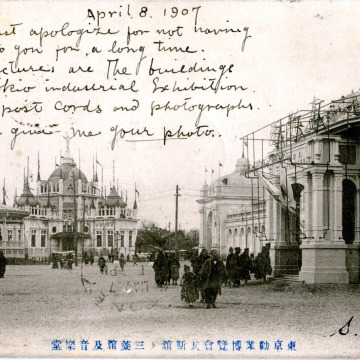 April 8. 1907
ust apologize for not having
you for a long time.
ctures are The buildings
okio industrial Exhibition.
post cords and photographs.
give me your photo.
東京勧業博覧會瓦斯館ト三菱館及音樂堂
S.